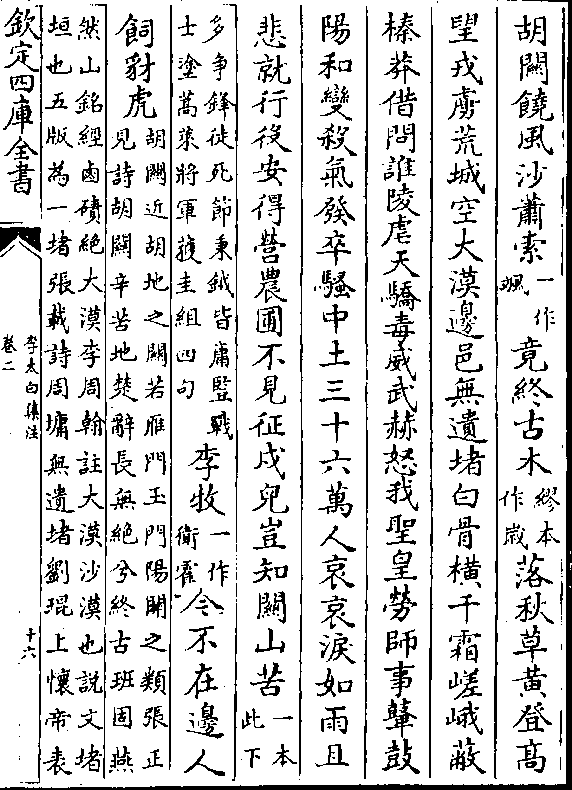 胡關饒風沙蕭索一作颯竟終古木繆本作歳落秋草黃登髙
望戎虜荒城空大漠邊邑無遺堵白骨横千霜嵯峨蔽
榛莽借問誰陵虐天驕毒威武赫怒我聖皇勞師事鼙鼓
陽和變殺氣發卒騷中土三十六萬人哀哀淚如雨且
悲就行役安得營農圃不見征戍兒豈知關山苦一本此下
多爭鋒徒死節秉鉞皆庸豎戰
士塗蒿萊將軍獲圭組四句李牧一作衞霍今不在邊人
飼豺虎胡關近胡地之關若雁門玉門陽關之類張正
見詩胡關辛苦地楚辭長無絶兮終古班固燕
然山銘經鹵磧絶大漠李周翰註大漠沙漠也說文堵
垣也五版為一堵張載詩周墉無遺堵劉琨上懷帝表
欽定四庫全書
李太白集注
卷二
十六